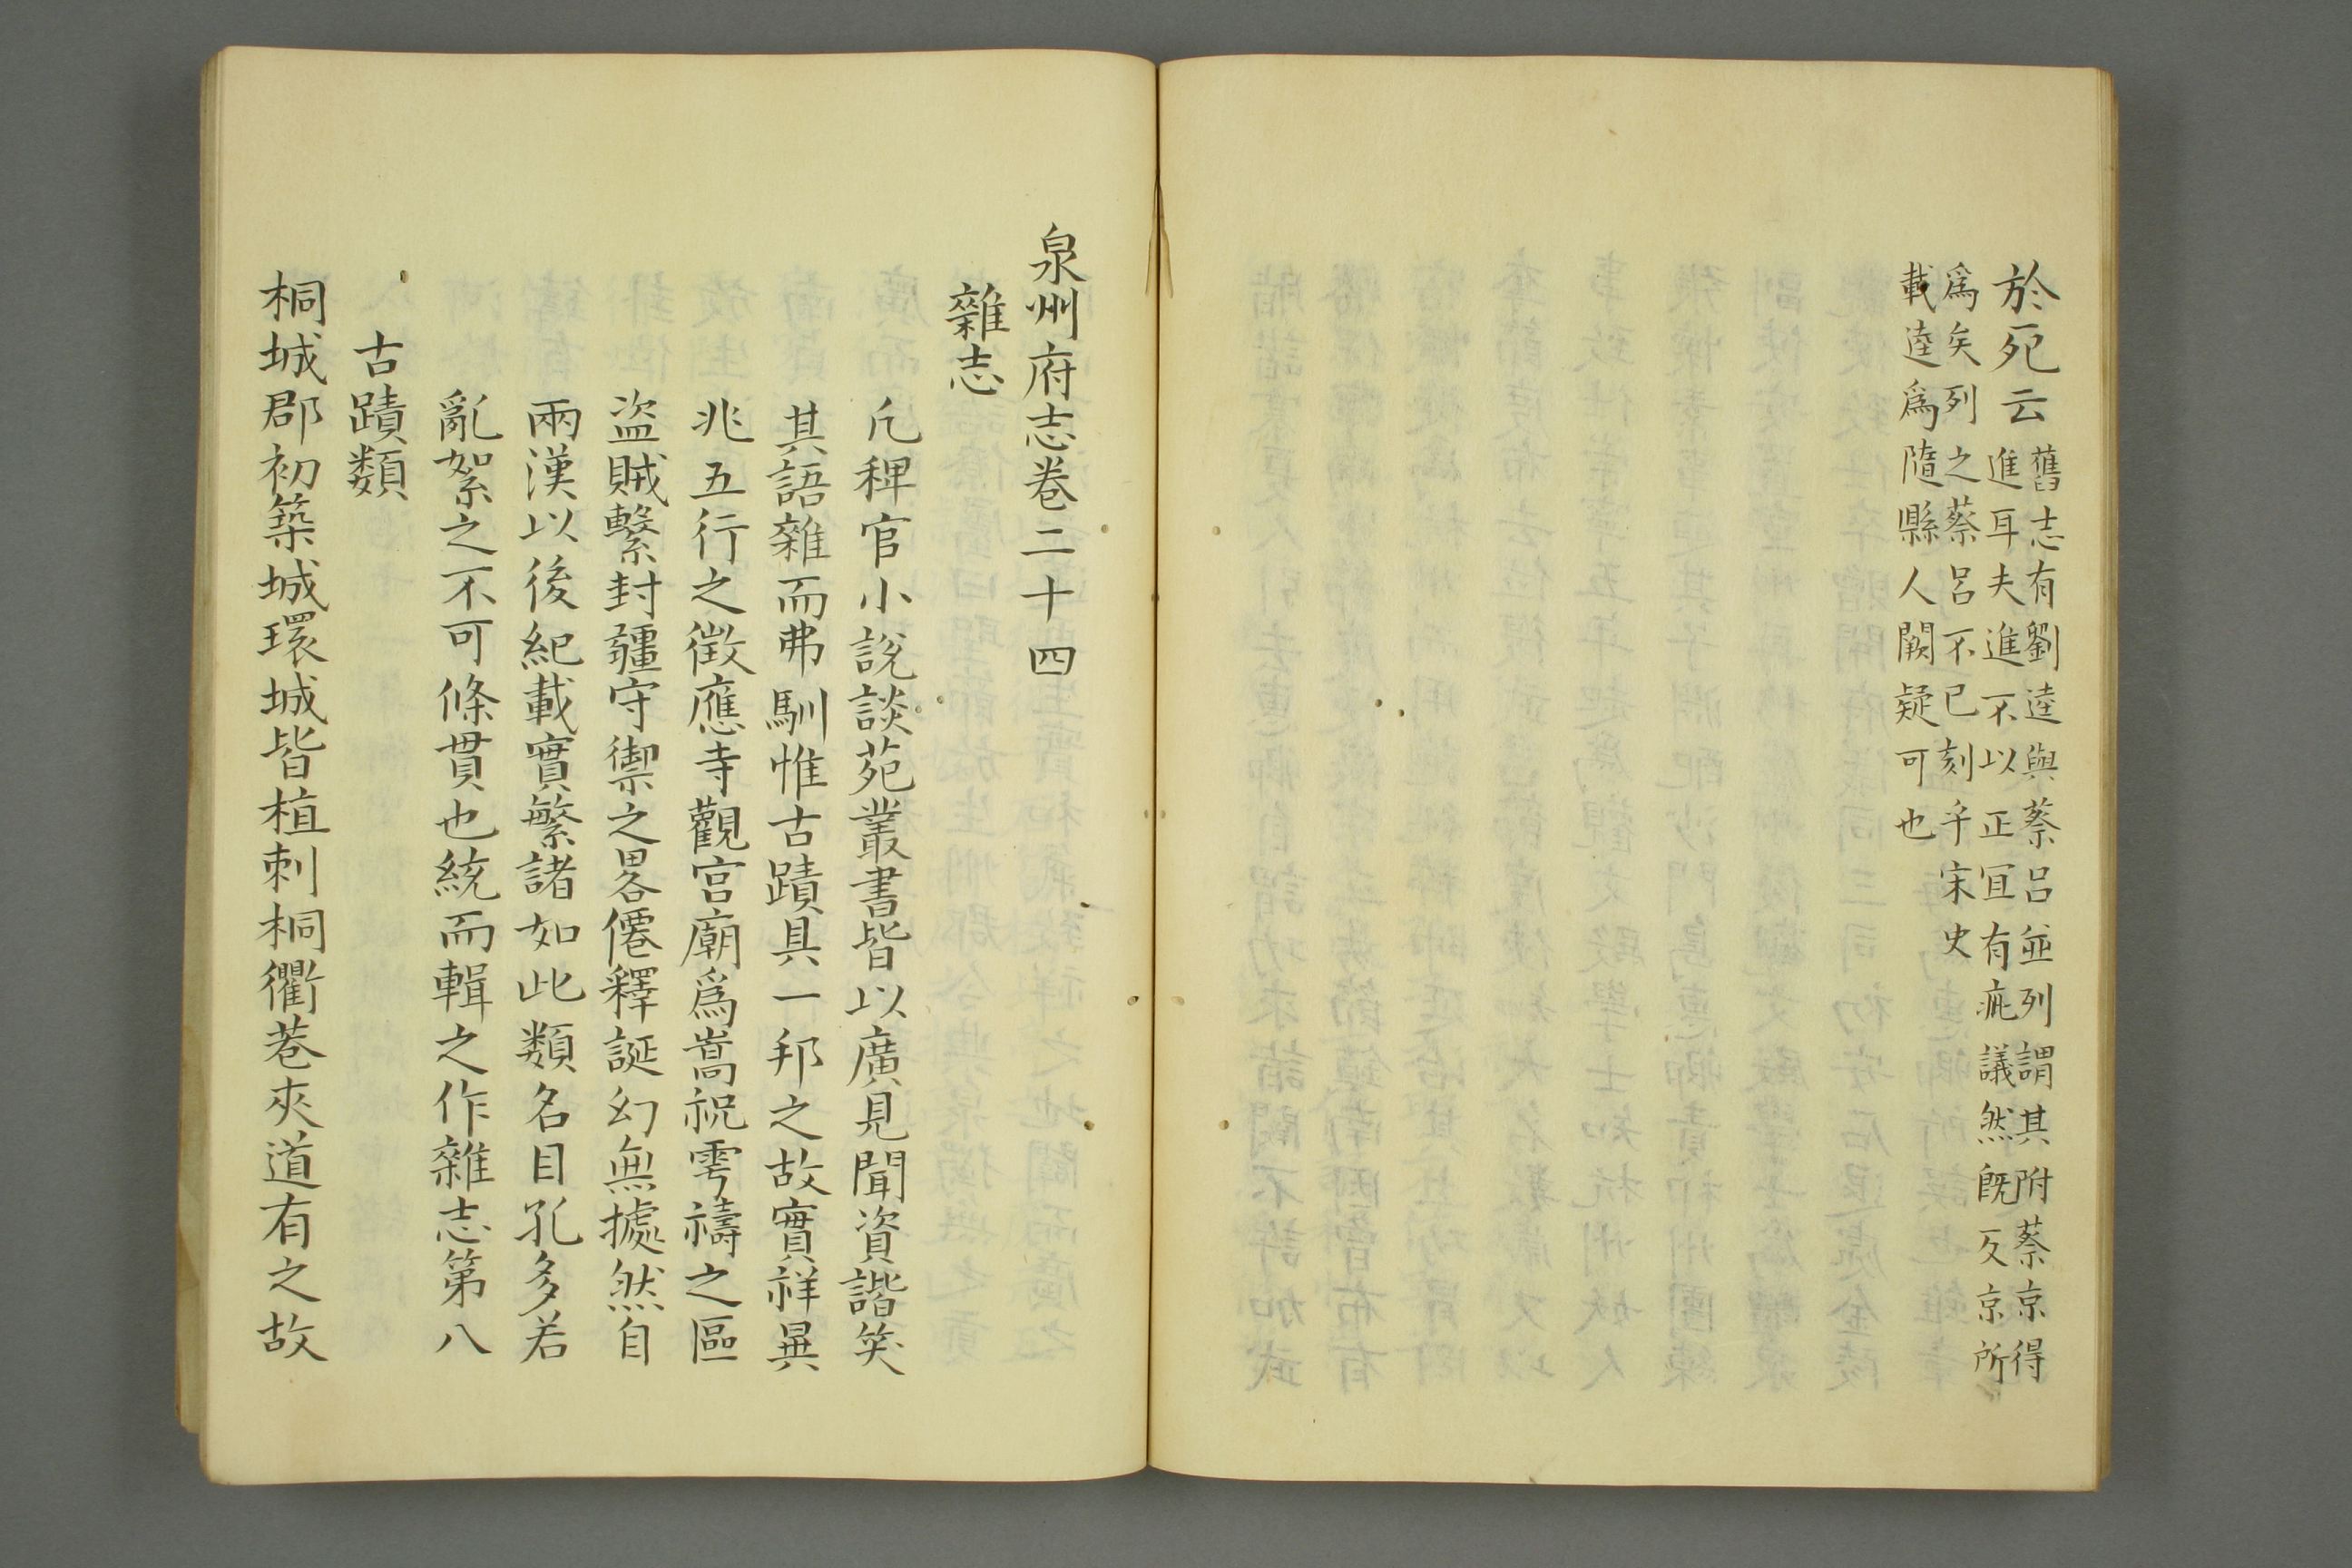 於死云
舊志有劉逵與蔡呂並列謂其附蔡京得
進耳夫進不以正宜有疵議然既反京所
爲矣列之蔡呂不已刻乎宋史
載逵爲隨縣人闕疑可也
泉州府志卷二十四
雜志
凡稗官小說談苑叢書皆以廣見聞資諧笑
其語雜而弗馴惟古蹟具一邦之故實祥異
兆五行之徵應寺觀宫廟爲嵩祝雩禱之區
盜賊繫封疆守禦之畧僊釋誕幻無據然自
兩漢以後紀載實繁諸如此類名目孔多若
亂絮之不可條貫也統而輯之作雜志第八
古蹟類
桐城郡初築城環城皆植刺桐衢巷夾道有之故